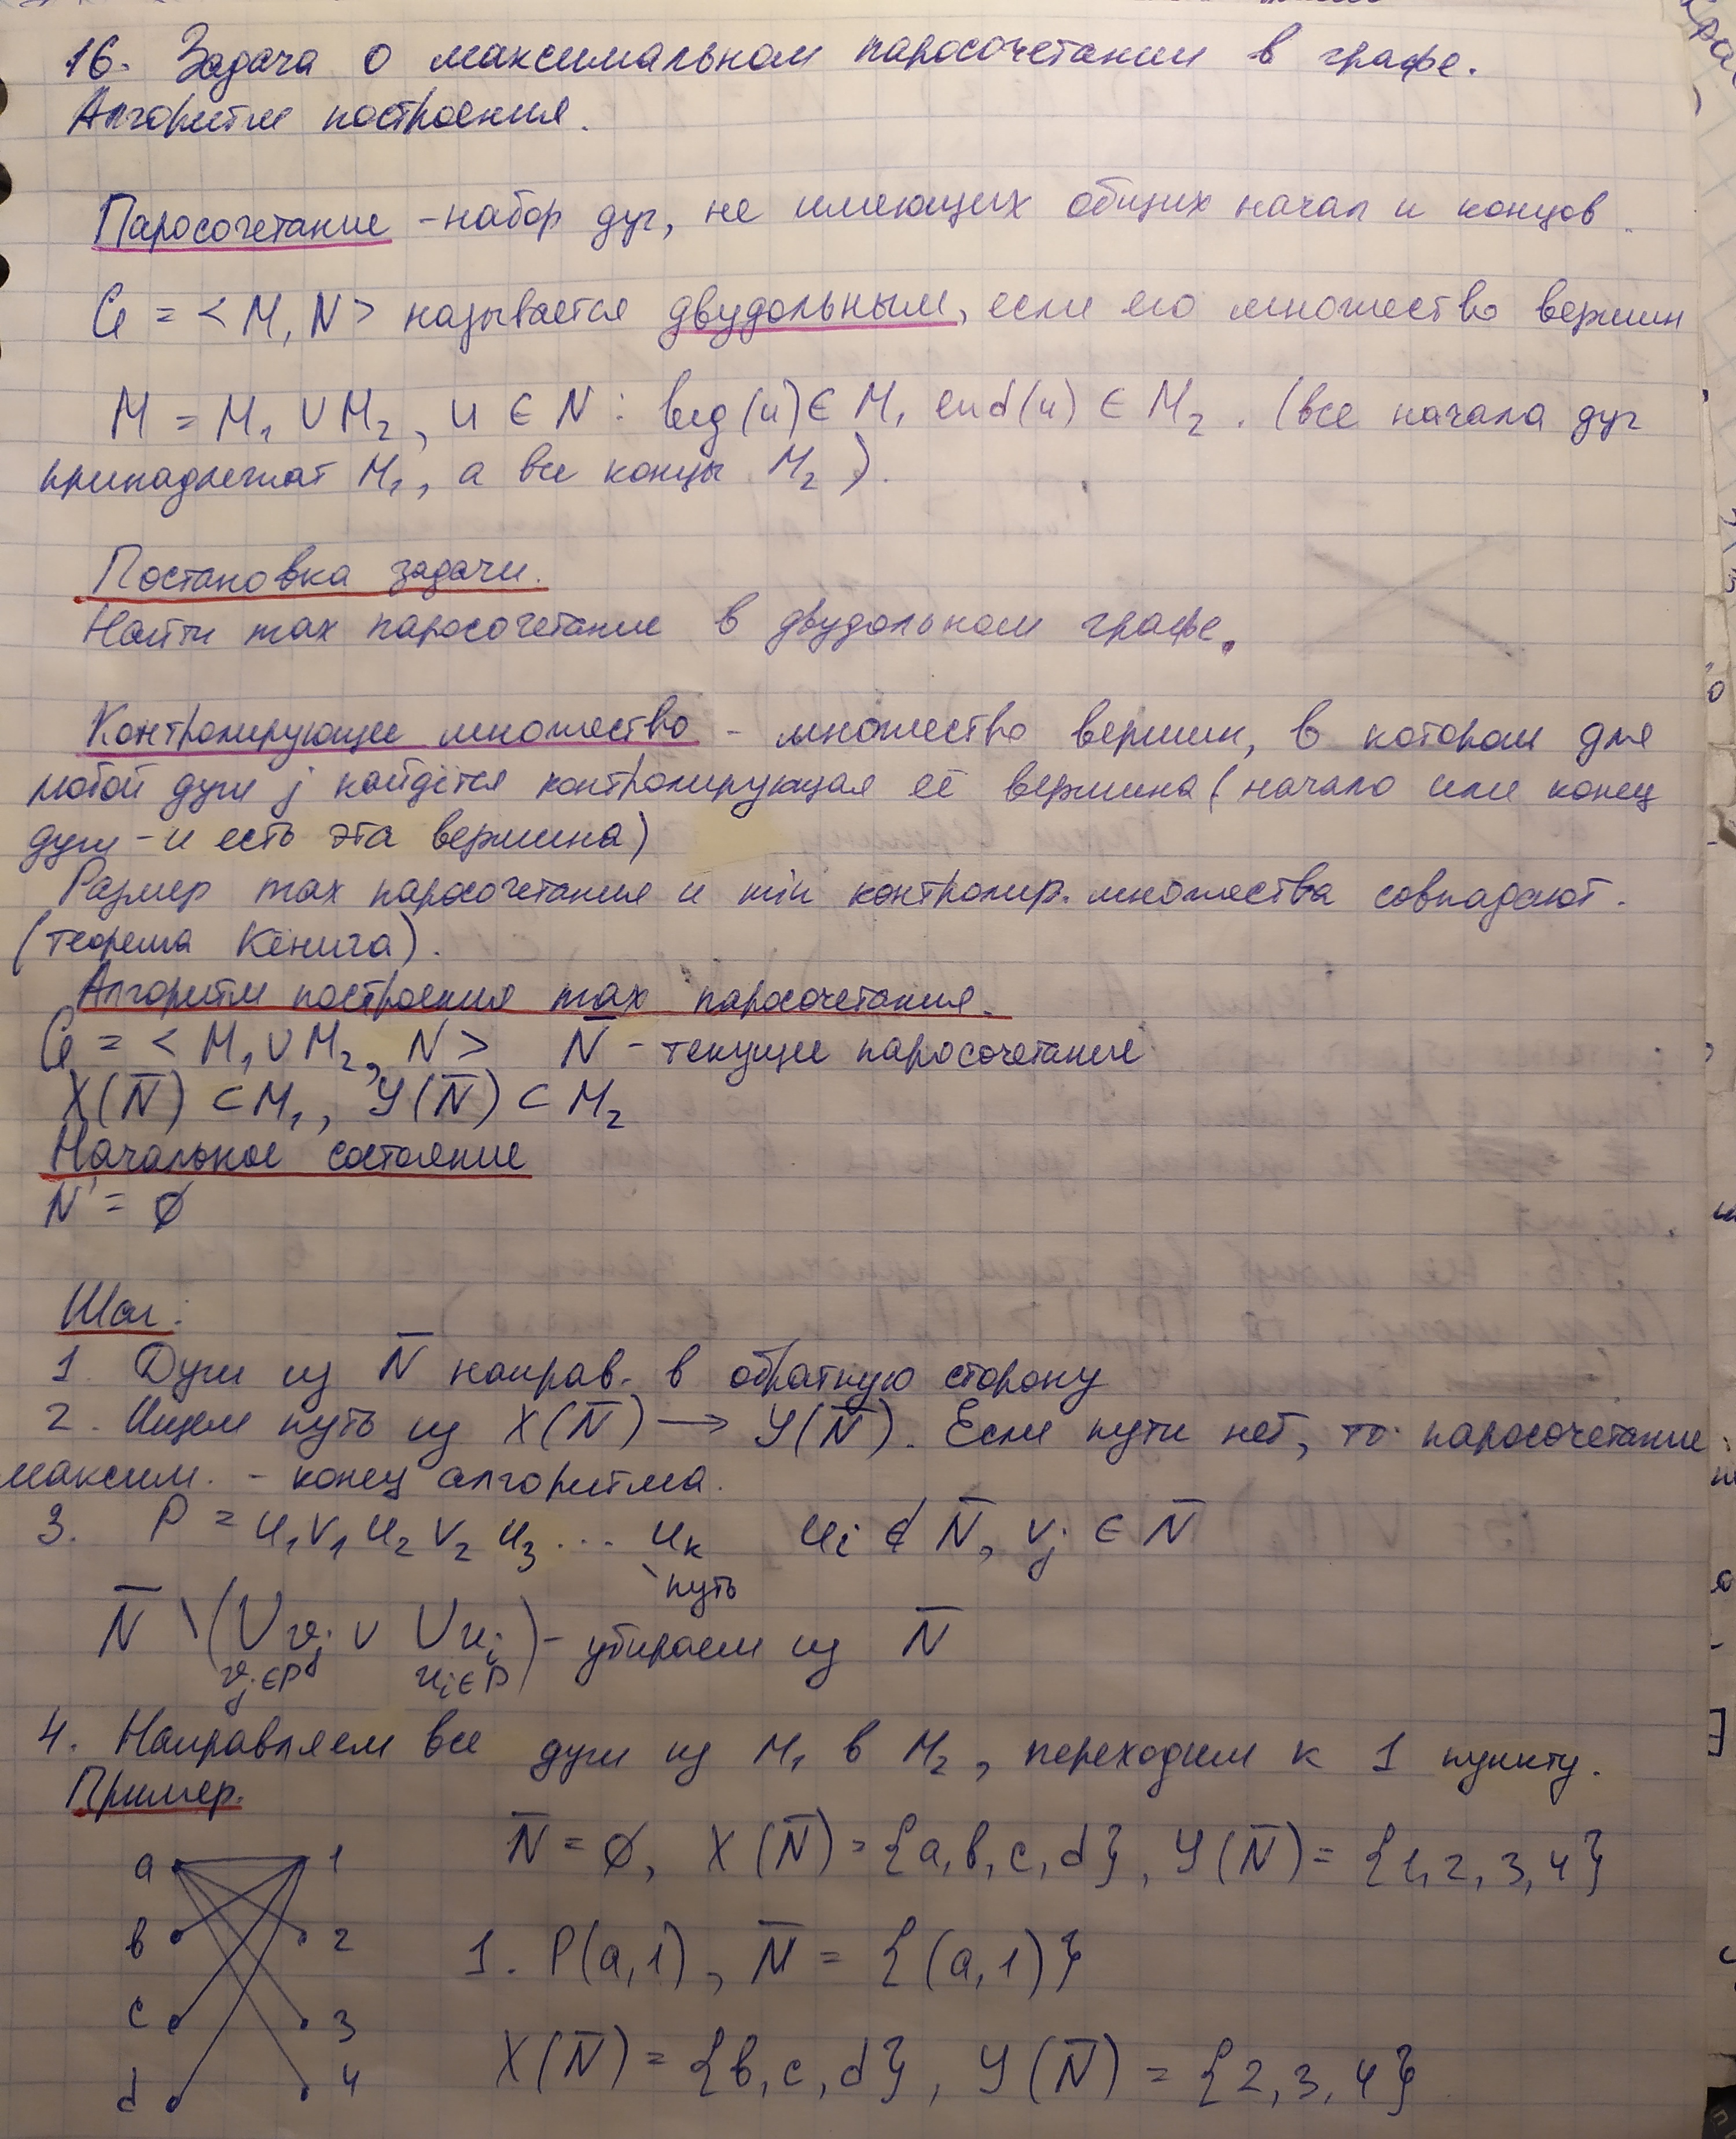 16. Задача о максимальном паросочетании в графе.
Алгоритм построения.
Паросочетание - набор дуг, не имеющих общих начал и концов.
G = < M, N > называется двудольным, если его множество вершин
M = M₁ ∪ M₂, u ∈ N : beg(u) ∈ M₁ end(u) ∈ M₂. (все начала дуг
принадлежат M₁, а все концы M₂).
Постановка задачи.
Найти max паросочетание в двудольном графе.
Контролирующее множество - множество вершин, в котором для
любой дуги j найдётся контролирующая её вершина (начало или конец
дуги - и есть эта вершина)
Размер max паросочетания и min контролир. множества совпадают.
(теорема Кёнига).
Алгоритм построения max паросочетания.
G = < M₁ ∪ M₂, N > N̅ - текущее паросочетание
X(N̅) ⊂ M₁, Y(N̅) ⊂ M₂
Начальное состояние
N' = ∅
Шаг:
1. Дуги из N̅ направ. в обратную сторону
2. Ищем путь из X(N̅) → Y(N̅). Если пути нет, то паросочетание
максим. - конец алгоритма.
3. P = u₁v₁u₂v₂u₃... uₖ uᵢ ∉ N̅, vⱼ ∈ N̅
путь
N̅ \ (∪vⱼ ∪ ∪uᵢ) - убираем из N̅
vⱼ∈P uᵢ∈P
4. Направляем все дуги из M₁ в M₂, переходим к 1 пункту.
Пример.
N̅ = ∅, X(N̅) = {a, b, c, d}, Y(N̅) = {1, 2, 3, 4}
a 1
b 2
1. P(a,1), N̅ = {(a,1)}
c 3
d 4
X(N̅) = {b, c, d}, Y(N̅) = {2, 3, 4}